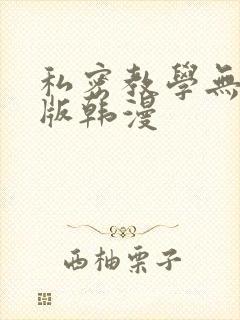 私密教學無
版韩漫
西柚栗子